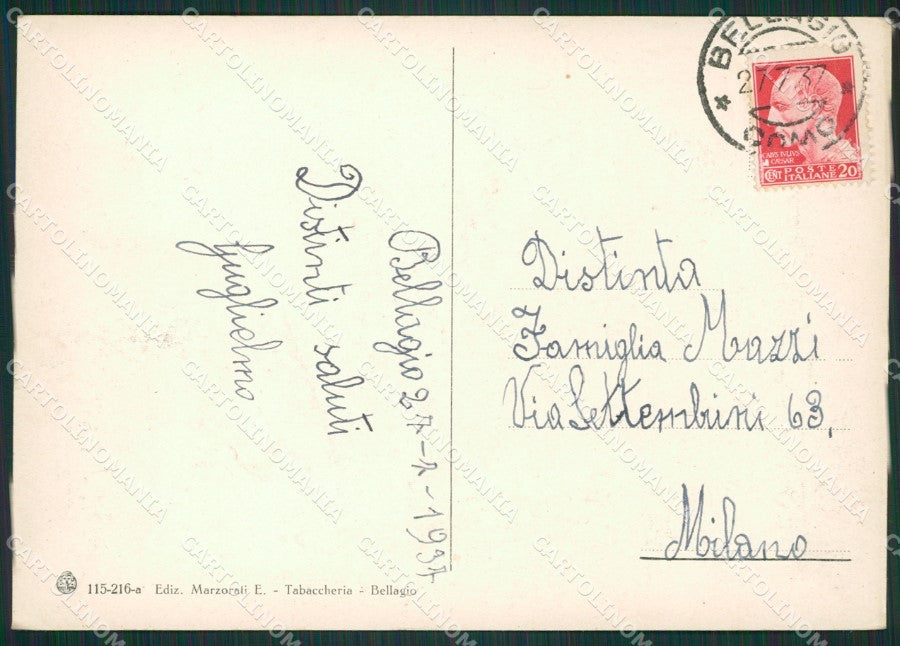 BELLAGIO
27.7.37
COMO
CAIVS IVLIVS
CAESAR
CENT POSTE ITALIANE 20
Bellagio 27-7-1937
Distinti saluti
Guglielmo
Distinta
Famiglia Mazzi
Via Settembrini 63.
Milano
115-216-a Ediz. Marzorati E. - Tabaccheria - Bellagio
CARTOLINOMANIA